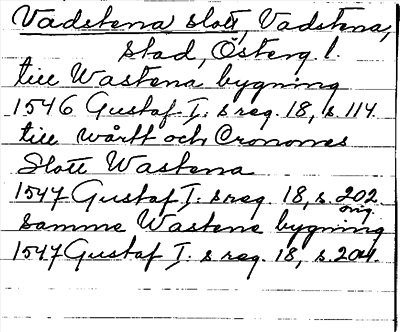 Vadstena slott, Vadstena,
stad, Österg. l.
till Wastena bygning
1546 Gustaf I: s reg. 18, s. 114.
till wårtt och Cronones
Slott Wastena
1547 Gustaf I: s reg. 18, s. 202
orig.
samme Wastene bygning
1547 Gustaf I: s reg. 18, s. 204.